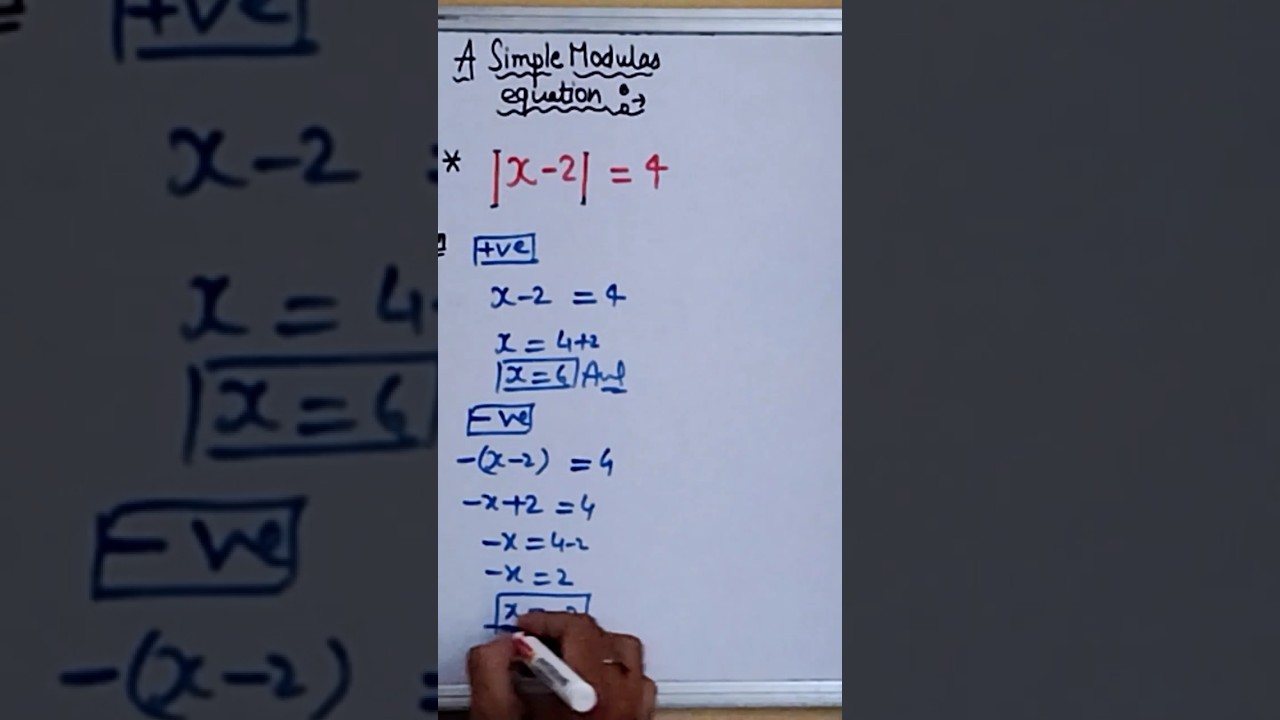 A Simple Modulas
equation :→
* |x-2| = 4
+ve
x-2 = 4
x = 4+2
x = 6 Ans
-ve
-(x-2) = 4
-x+2 = 4
-x = 4-2
-x = 2
x = -2